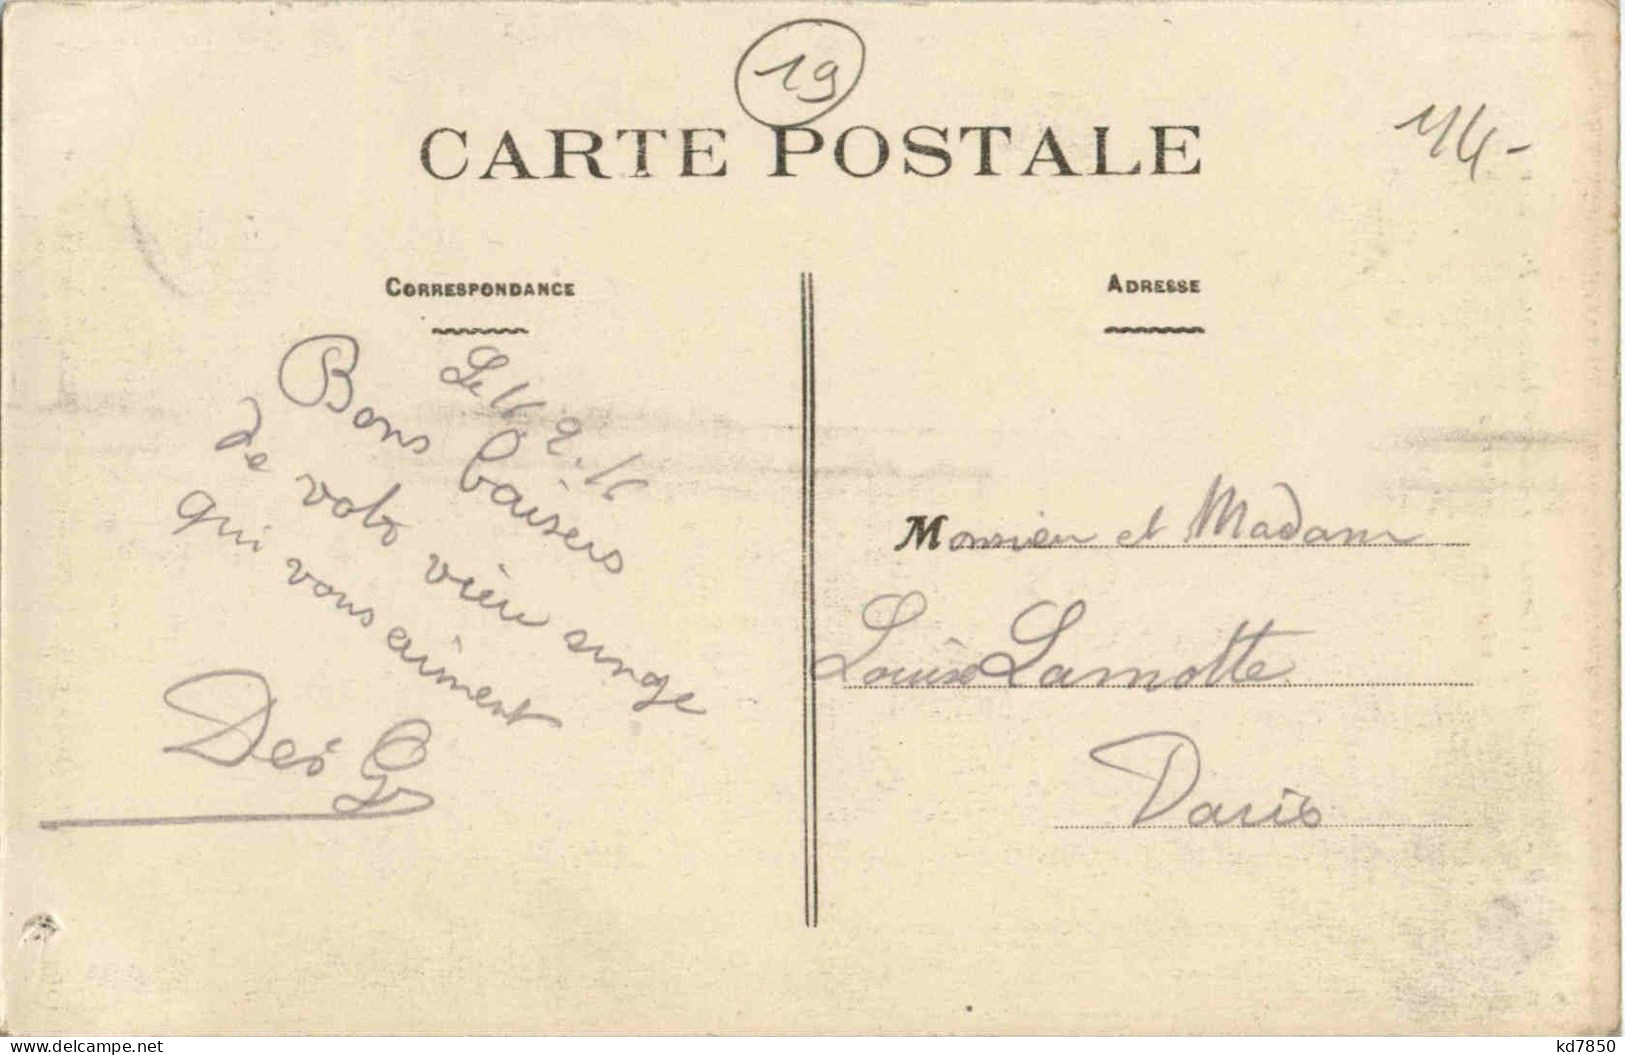 19
14-
CARTE POSTALE
CORRESPONDANCE
ADRESSE
Le
Bons baisers
de votr vieu singe
qui vous aiment
Dés G
Monsieu et Madam
Louise Lamotte
Paris
www.delcampe.net
kd7850